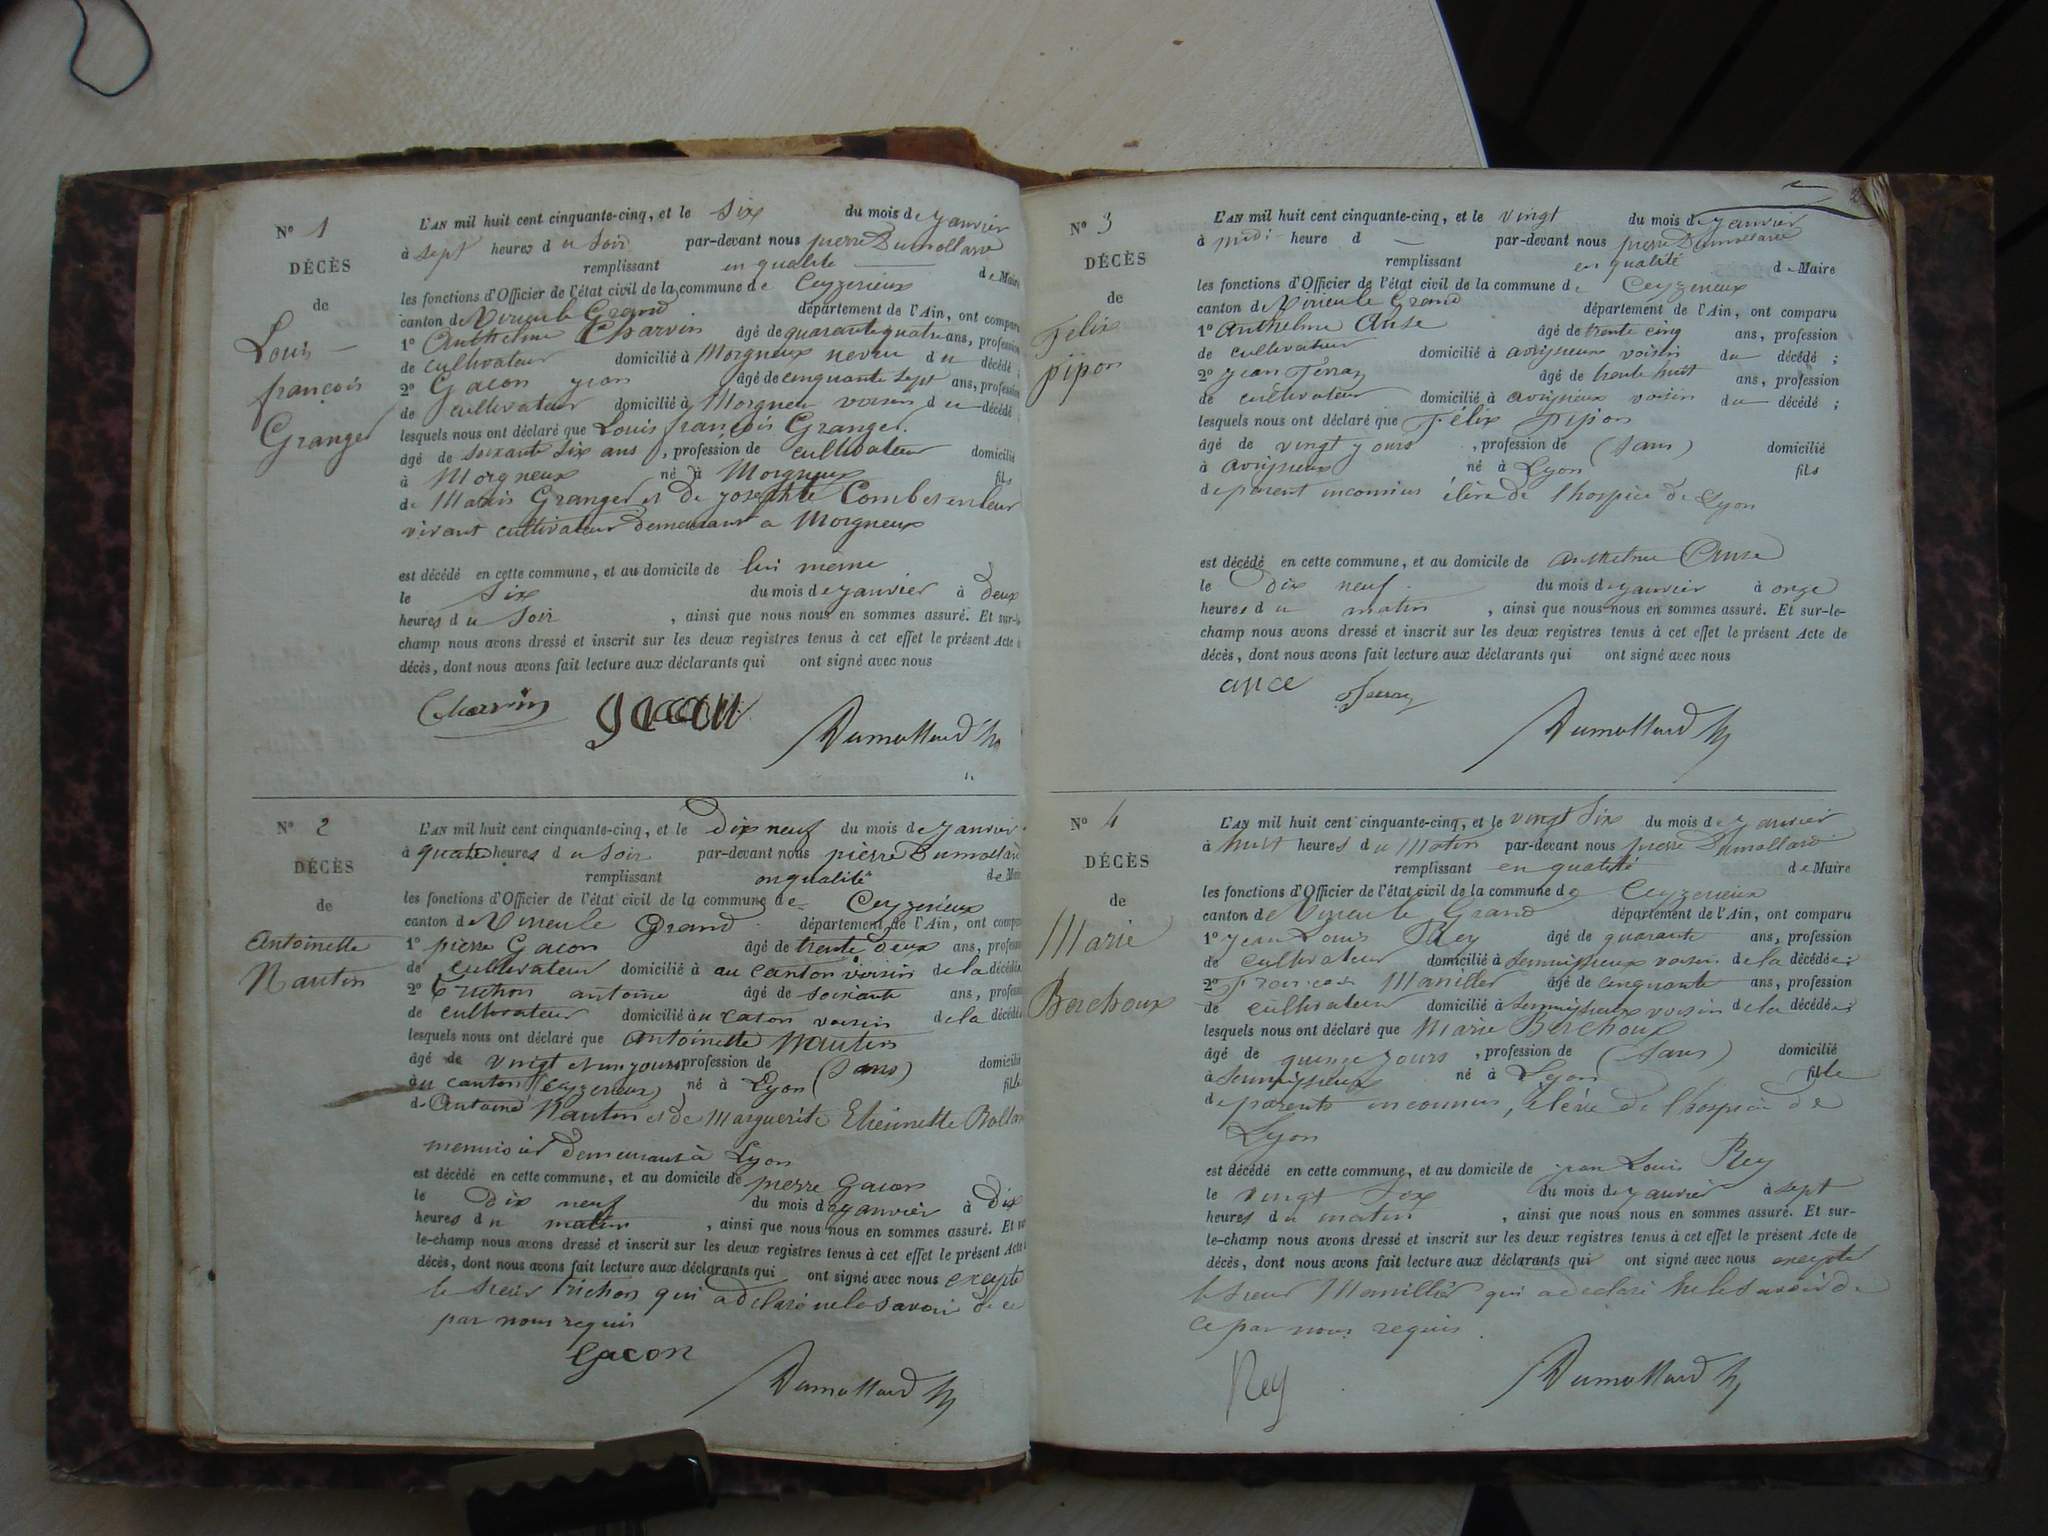 N° 1
DÉCÈS
de
Louis
françois
Granger
L'AN mil huit cent cinquante-cinq, et le Six du mois de janvier
à sept heures du Soir par-devant nous pierre Dumollard
remplissant en qualité de Maire
les fonctions d'Officier de l'état civil de la commune de Ceyzerieux
canton de Virieu le Grand département de l'Ain, ont comparu
1° Anthelme Charvin âgé de quarante quatre ans, profession
de cultivateur domicilié à Morgneux neveu du décédé ;
2° Gacon jean âgé de cinquante sept ans, profession
de cultivateur domicilié à Morgneu voisin du décédé ;
lesquels nous ont déclaré que Louis françois Granger
âgé de soixante six ans, profession de cultivateur domicilié
à Morgneux né à Morgneux fils
de Granger et de josephte Combet en leur
vivant cultivateur demeurant a Morgneux
est décédé en cette commune, et au domicile de lui meme
le Six du mois de janvier à deux
heures du Soir , ainsi que nous nous en sommes assuré. Et sur-le-
champ nous avons dressé et inscrit sur les deux registres tenus à cet effet le présent Acte
décès, dont nous avons fait lecture aux déclarants qui ont signé avec nous
Charvin gacon
Dumollard
N° 2
DÉCÈS
de
Antoinette
Nantin
L'AN mil huit cent cinquante-cinq, et le Dix neuf du mois de janvier
à quatre heures du Soir par-devant nous pierre Dumollard
remplissant en qualité de Maire
les fonctions d'Officier de l'état civil de la commune de Ceyzerieux
canton de Virieu le Grand département de l'Ain, ont comparu
1° pierre Gacon âgé de trente deux ans, profession
de cultivateur domicilié à au canton voisin de la décédée
2° Trichon antoine âgé de soixante ans, profession
de cultivateur domicilié à au caton voisin de la décédée
lesquels nous ont déclaré que Antoinette Nantin
âgé de vingt et un jours, profession de (Sans) domicilié
à au canton (Ceyzerieux) né à Lyon fille
de Antoine Nantin et de Marguerite Etiennette
menuisier demeurant à Lyon
est décédé en cette commune, et au domicile de pierre gacon
le dix neuf du mois de janvier à Dix
heures du matin , ainsi que nous nous en sommes assuré. Et sur-
le-champ nous avons dressé et inscrit sur les deux registres tenus à cet effet le présent Acte
décès, dont nous avons fait lecture aux déclarants qui ont signé avec nous excepte
le sieur trichon qui a declaré ne le savoir de ce
par nous requis
Gacon
Dumollard
2
N° 3
DÉCÈS
de
Felix
pipon
L'AN mil huit cent cinquante-cinq, et le vingt du mois de janvier
à midi heure d — par-devant nous pierre Dumollard
remplissant en qualité de Maire
les fonctions d'Officier de l'état civil de la commune de Ceyzerieux
canton de Virieu le Grand département de l'Ain, ont comparu
1° Anthelme Anse âgé de trente cinq ans, profession
de cultivateur domicilié à avrigneux voisin du décédé ;
2° jean âgé de trente huit ans, profession
de cultivateur domicilié à avrigneux voisin du décédé ;
lesquels nous ont déclaré que Félix pipon
âgé de vingt jours , profession de (sans) domicilié
à avrigneux né à Lyon fils
de parent inconnus élève de l'hospice de Lyon
est décédé en cette commune, et au domicile de anthelme Anse
le Dix neuf du mois de janvier à onze
heures du matin , ainsi que nous nous en sommes assuré. Et sur-le-
champ nous avons dressé et inscrit sur les deux registres tenus à cet effet le présent Acte de
décès, dont nous avons fait lecture aux déclarants qui ont signé avec nous
ance
Dumollard
N° 4
DÉCÈS
de
Marie
Berchoux
L'AN mil huit cent cinquante-cinq, et le vingt Six du mois de janvier
à huit heures du Matin par-devant nous pierre Dumollard
remplissant en qualité de Maire
les fonctions d'Officier de l'état civil de la commune de Ceyzerieux
canton de Virieu le Grand département de l'Ain, ont comparu
1° jean Louis Rey âgé de quarante ans, profession
de cultivateur domicilié à voisin de la décédée ;
2° Francois Manillier âgé de cinquante ans, profession
de cultivateur domicilié à voisin de la décédée ;
lesquels nous ont déclaré que Marie Berchoux
âgé de quinze jours , profession de (Sans) domicilié
à né à Lyon fille
de parents inconnus, élève de l'hospice de
Lyon
est décédé en cette commune, et au domicile de jean Louis Rey
le vingt Six du mois de janvier à sept
heures du matin , ainsi que nous nous en sommes assuré. Et sur-
le-champ nous avons dressé et inscrit sur les deux registres tenus à cet effet le présent Acte de
décès, dont nous avons fait lecture aux déclarants qui ont signé avec nous excepte
le sieur Manillier qui a declaré ne le savoir de
ce par nous requis.
Rey
Dumollard